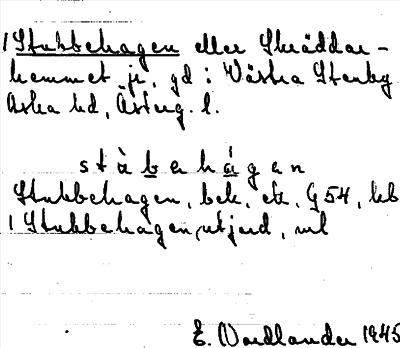 /Stubbehagen eller Skräddar-
hemmet je, gd i Västra Stenby
Aska hd, Österg. l.
stàbehágen
Stubbehagen, bek, ek, G54, kb
/Stubbehagen, utjord, ml
E. Nordlander 1945